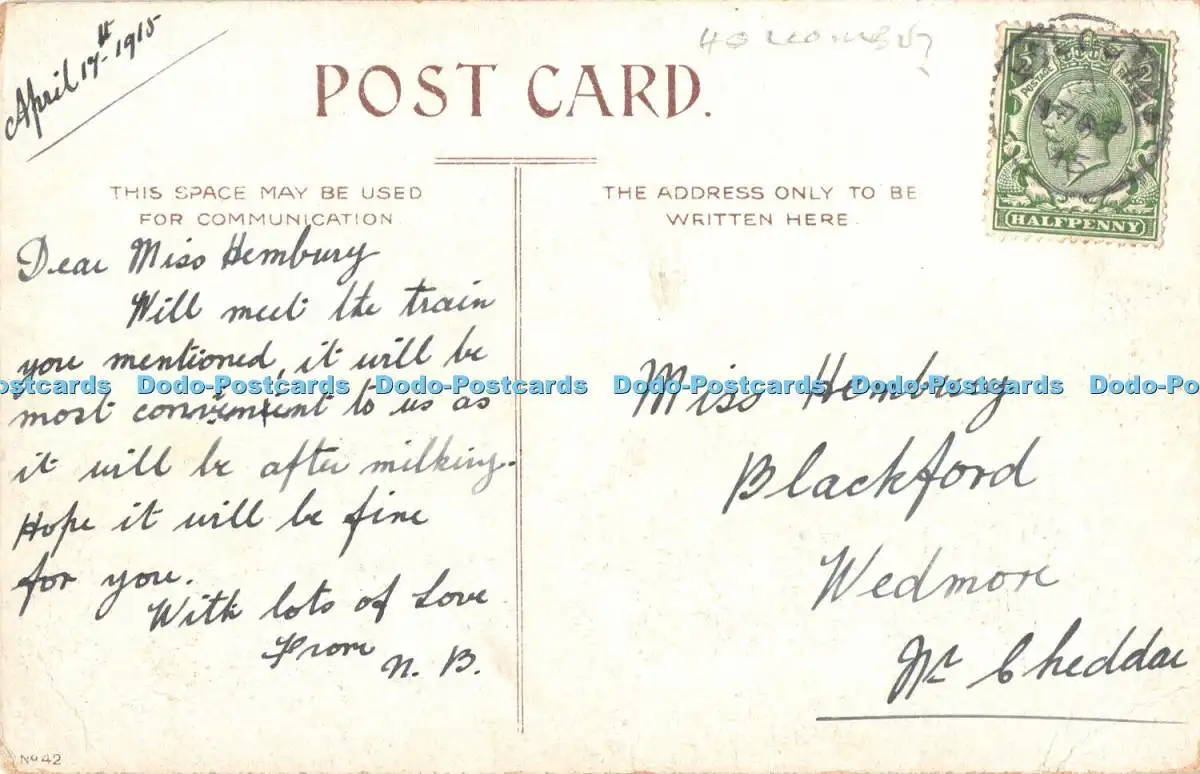 April 17th 1915
POST CARD.
THIS SPACE MAY BE USED
FOR COMMUNICATION
THE ADDRESS ONLY TO BE
WRITTEN HERE
POSTAGE
HALFPENNY
Dear Miss Hembury
Will meet the train
you mentioned, it will be
most convenient to us as
it will be after milking.
Hope it will be fine
for you.
With lots of Love
From
N. B.
Miss Hembury
Blackford
Wedmore
Nr Cheddar
Dodo-Postcards Dodo-Postcards Dodo-Postcards Dodo-Postcards Dodo-Postcards
No 42